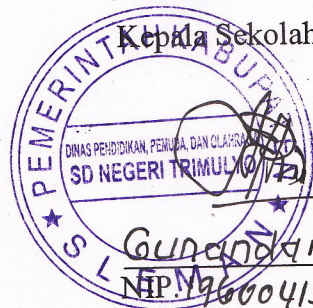 Kepala Sekolah
PEMERINTAH KABUPATEN
DINAS PENDIDIKAN, PEMUDA, DAN OLAHRAGA
SD NEGERI TRIMULYO
SLEMAN
NIP.